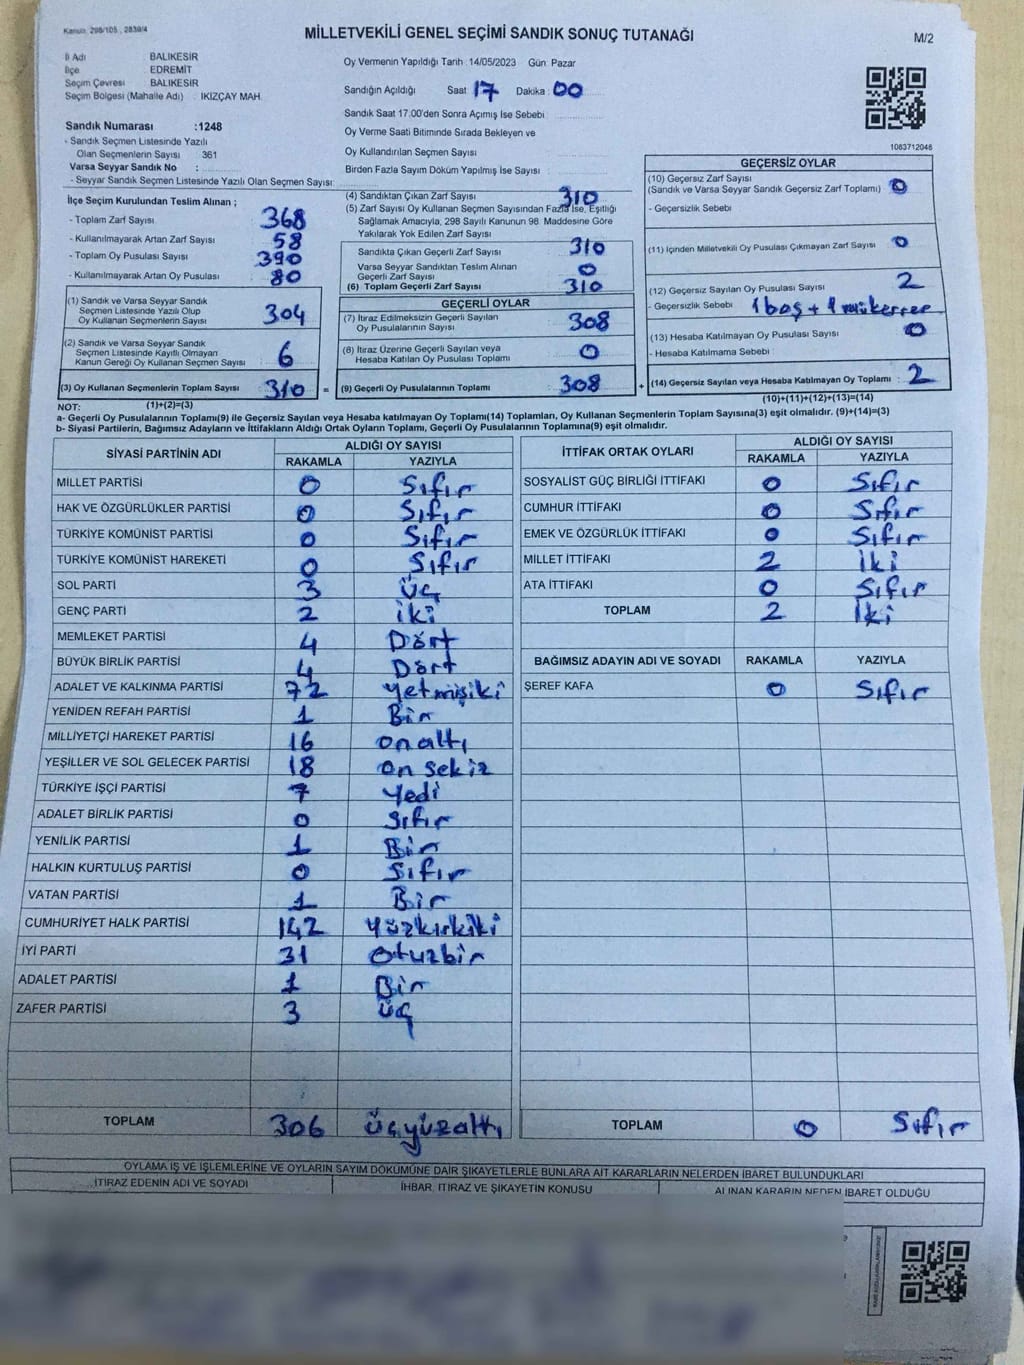 Kanun: 298/105, 2839/4
MİLLETVEKİLİ GENEL SEÇİMİ SANDIK SONUÇ TUTANAĞI
M/2
İl Adı : BALIKESİR
İlçe : EDREMİT
Seçim Çevresi : BALIKESİR
Seçim Bölgesi (Mahalle Adı) : IKIZÇAY MAH.
Sandık Numarası :1248
- Sandık Seçmen Listesinde Yazılı
Olan Seçmenlerin Sayısı 361
Varsa Seyyar Sandık No :
- Seyyar Sandık Seçmen Listesinde Yazılı Olan Seçmen Sayısı:
Oy Vermenin Yapıldığı Tarih :14/05/2023 Gün: Pazar
Sandığın Açıldığı Saat 17 Dakika : 00
Sandık Saat 17:00'den Sonra Açımış İse Sebebi :
Oy Verme Saati Bitiminde Sırada Bekleyen ve
Oy Kullandırılan Seçmen Sayısı
Birden Fazla Sayım Döküm Yapılmış İse Sayısı :
1083712046
İlçe Seçim Kurulundan Teslim Alınan ;
- Toplam Zarf Sayısı 368
- Kullanılmayarak Artan Zarf Sayısı 58
- Toplam Oy Pusulası Sayısı 390
- Kullanılmayarak Artan Oy Pusulası 80
(1) Sandık ve Varsa Seyyar Sandık
Seçmen Listesinde Yazılı Olup
Oy Kullanan Seçmenlerin Sayısı 304
(2) Sandık ve Varsa Seyyar Sandık
Seçmen Listesinde Kayıtlı Olmayan
Kanun Gereği Oy Kullanan Seçmen Sayısı 6
(3) Oy Kullanan Seçmenlerin Toplam Sayısı 310 =
(1)+(2)=(3)
(4) Sandıktan Çıkan Zarf Sayısı 310
(5) Zarf Sayısı Oy Kullanan Seçmen Sayısından Fazla İse, Eşitliği
Sağlamak Amacıyla, 298 Sayılı Kanunun 98. Maddesine Göre
Yakılarak Yok Edilen Zarf Sayısı
Sandıkta Çıkan Geçerli Zarf Sayısı 310
Varsa Seyyar Sandıktan Teslim Alınan
Geçerli Zarf Sayısı 0
(6) Toplam Geçerli Zarf Sayısı 310
GEÇERLİ OYLAR
(7) İtiraz Edilmeksizin Geçerli Sayılan
Oy Pusulalarının Sayısı 308
(8) İtiraz Üzerine Geçerli Sayılan veya
Hesaba Katılan Oy Pusulası Toplamı 0
(9) Geçerli Oy Pusulalarının Toplamı 308 +
GEÇERSİZ OYLAR
(10) Geçersiz Zarf Sayısı
(Sandık ve Varsa Seyyar Sandık Geçersiz Zarf Toplamı) 0
- Geçersizlik Sebebi
(11) İçinden Milletvekili Oy Pusulası Çıkmayan Zarf Sayısı 0
(12) Geçersiz Sayılan Oy Pusulası Sayısı 2
- Geçersizlik Sebebi : 1 boş + 1 mükerrer
(13) Hesaba Katılmayan Oy Pusulası Sayısı 0
- Hesaba Katılmama Sebebi
(14) Geçersiz Sayılan veya Hesaba Katılmayan Oy Toplamı : 2
(10)+(11)+(12)+(13)=(14)
NOT:
a- Geçerli Oy Pusulalarının Toplamı(9) ile Geçersiz Sayılan veya Hesaba katılmayan Oy Toplamı(14) Toplamları, Oy Kullanan Seçmenlerin Toplam Sayısına(3) eşit olmalıdır. (9)+(14)=(3)
b- Siyasi Partilerin, Bağımsız Adayların ve İttifakların Aldığı Ortak Oyların Toplamı, Geçerli Oy Pusulalarının Toplamına(9) eşit olmalıdır.
SİYASİ PARTİNİN ADI ALDIĞI OY SAYISI
RAKAMLA YAZIYLA
MİLLET PARTİSİ 0 Sıfır
HAK VE ÖZGÜRLÜKLER PARTİSİ 0 Sıfır
TÜRKİYE KOMÜNİST PARTİSİ 0 Sıfır
TÜRKİYE KOMÜNİST HAREKETİ 0 Sıfır
SOL PARTİ 3 üç
GENÇ PARTİ 2 iki
MEMLEKET PARTİSİ 4 Dört
BÜYÜK BİRLİK PARTİSİ 4 Dört
ADALET VE KALKINMA PARTİSİ 72 yetmişiki
YENİDEN REFAH PARTİSİ 1 Bir
MİLLİYETÇİ HAREKET PARTİSİ 16 onaltı
YEŞİLLER VE SOL GELECEK PARTİSİ 18 on sekiz
TÜRKİYE İŞÇİ PARTİSİ 7 Yedi
ADALET BİRLİK PARTİSİ 0 Sıfır
YENİLİK PARTİSİ 1 Bir
HALKIN KURTULUŞ PARTİSİ 0 Sıfır
VATAN PARTİSİ 1 Bir
CUMHURİYET HALK PARTİSİ 142 yüzkırkiki
İYİ PARTİ 31 otuzbir
ADALET PARTİSİ 1 Bir
ZAFER PARTİSİ 3 üç
TOPLAM 306 üçyüzaltı
İTTİFAK ORTAK OYLARI ALDIĞI OY SAYISI
RAKAMLA YAZIYLA
SOSYALİST GÜÇ BİRLİĞİ İTTİFAKI 0 Sıfır
CUMHUR İTTİFAKI 0 Sıfır
EMEK VE ÖZGÜRLÜK İTTİFAKI 0 Sıfır
MİLLET İTTİFAKI 2 İki
ATA İTTİFAKI 0 Sıfır
TOPLAM 2 İki
BAĞIMSIZ ADAYIN ADI VE SOYADI RAKAMLA YAZIYLA
ŞEREF KAFA 0 Sıfır
TOPLAM 0 Sıfır
OYLAMA İŞ VE İŞLEMLERİNE VE OYLARIN SAYIM DÖKÜMÜNE DAİR ŞİKAYETLERLE BUNLARA AİT KARARLARIN NELERDEN İBARET BULUNDUKLARI
İTİRAZ EDENİN ADI VE SOYADI İHBAR, İTİRAZ VE ŞİKAYETİN KONUSU ALINAN KARARIN NEDEN İBARET OLDUĞU